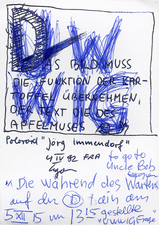 DAS BILD MUSS
DIE FUNKTION DER KAR-
TOFFEL ÜBERNEHMEN,
DER TEXT DIE DES
APFELMUSES
Polaroid "Jörg Immendorf"
4 IV 92 FRA
to go to
Uncle Bob
"Die während des Wartens
auf den D
5 XII 15 um 1315 gestellte